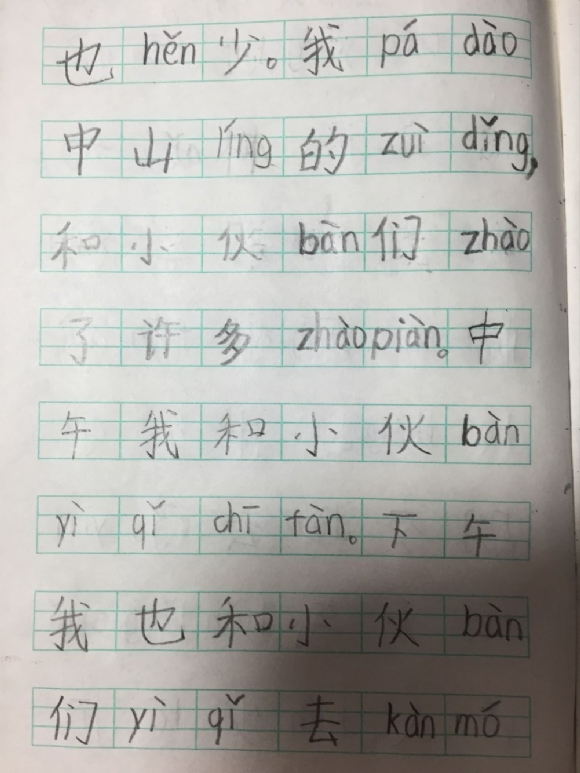 也hěn少。我pá dào
中山líng的zuì dǐng,
和小伙bàn们zhào
了许多zhàopiàn。中
午我和小伙bàn
yì qǐ chī fàn。下午
我也和小伙bàn
们yì qǐ去kàn mó